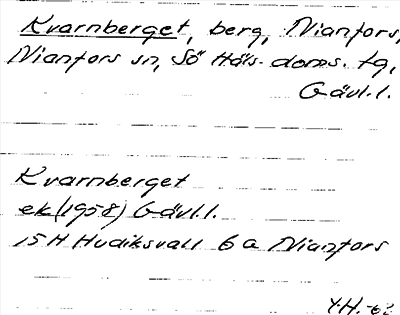 Kvarnberget, berg, Nianfors,
Nianfors sn, Sö Häls. doms. tg,
Gävl.l.
Kvarnberget
ek(1958) Gävl.l.
15H Hudiksvall 6a Nianfors
Y.H.-62